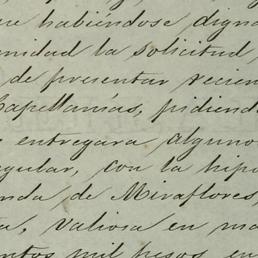 ue habiéndose digna
unidad la solicitud,
de presentar recien
Capellanías, pidiendo
entregara alguno
egular, con la hipo
nda de Miraflores,
ta, valiosa en ma
entos mil pesos, en